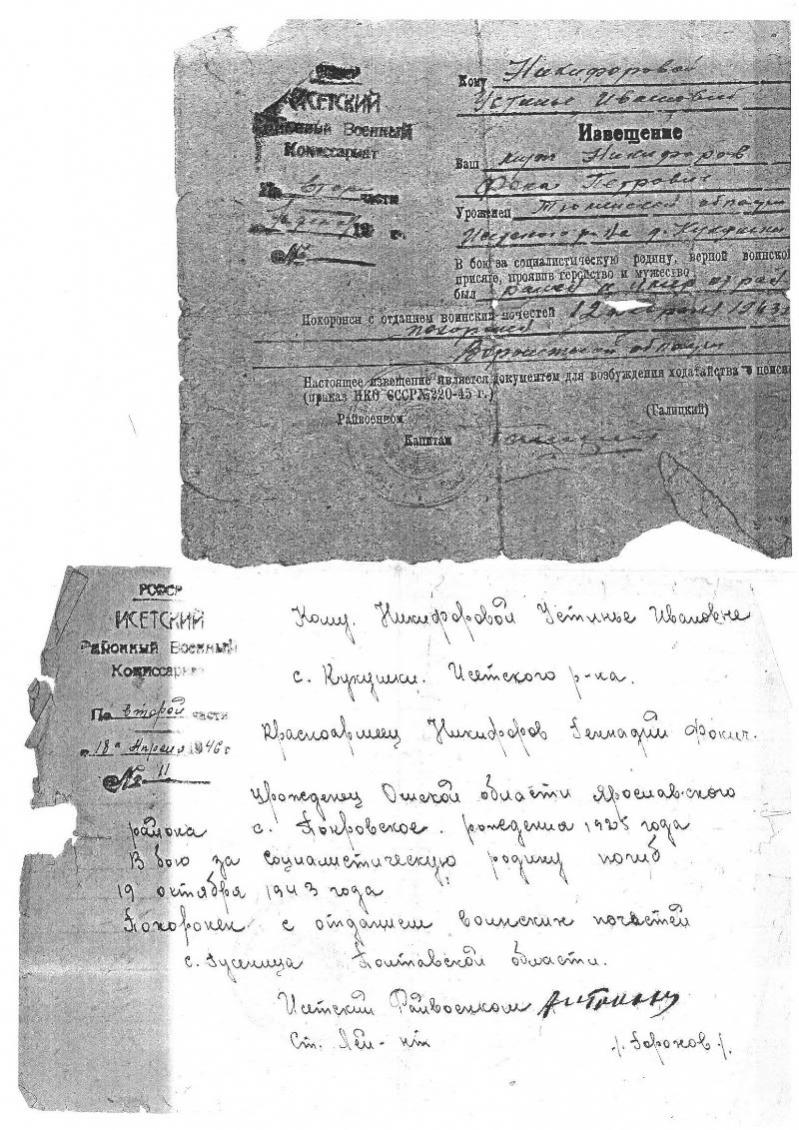 ИСЕТСКИЙ
Районный Военный
Комиссариат
По второй части
19 г.
№
Кому Никифоровой
Устинье Ивановне
Извещение
Ваш муж Никифоров
Фока Петрович
Уроженец Тюменской области
Исетского р-на д. Кукушки
В бою за социалистическую родину, верной воинской
присяге, проявив геройство и мужество,
был ранен и умер от ран
Похоронен с отданием воинских почестей 12 1943
похоронен
Воронежской области
Настоящее извещение является документом для возбуждения ходатайства о пенсии
(приказ НКО СССР № 220-45 г.)
Райвоенком
(Галицкий)
Капитан
РСФСР
ИСЕТСКИЙ
Районный Военный
Комиссариат
По второй части
"18" Апреля 1946 г
№ 11
Кому. Никифоровой Устинье Ивановне
с. Кукушки. Исетского р-на.
Красноармеец Никифоров Геннадий Фокич.
Урожденец Омской области Ярославского
района с. Покровское. рождения 1925 года
В бою за социалистическую родину погиб
19 октября 1943 года
Похоронен с отданием воинских почестей
с. Гусеница Полтавской области.
Исетский Райвоенком
Ст. Лей-нт